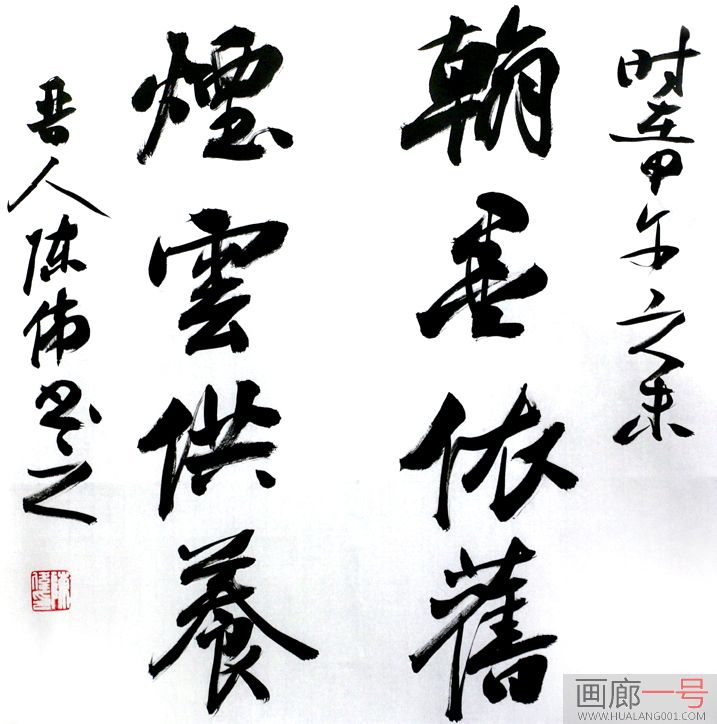 时甲午之末
翰墨依舊
煙雲供養
晋人陈伟书之
画廊一号
WWW.HUALANG001.COM